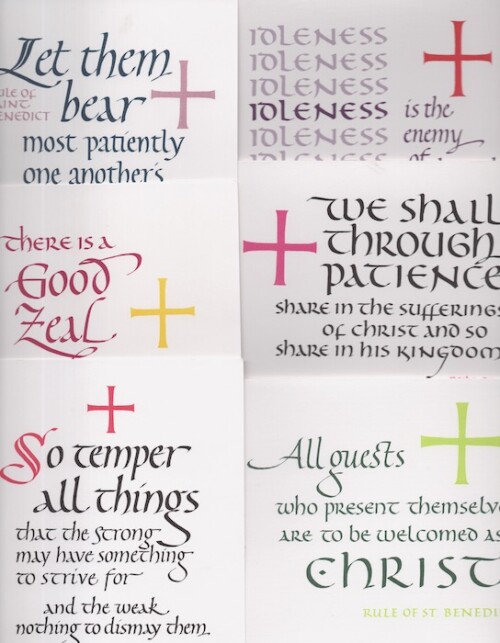 Let them
RULE OF
SAINT
BENEDICT
bear
most patiently
one another's
IDLENESS
IDLENESS
IDLENESS
IDLENESS is the
IDLENESS enemy
IDLENESS of
THERE IS A
Good
Zeal
WE SHALL
THROUGH
PATIENCE
SHARE IN THE SUFFERINGS
OF CHRIST AND SO
SHARE IN HIS KINGDOM
So temper
all things
that the strong
may have something
to strive for
and the weak
nothing to dismay them
All guests
WHO PRESENT THEMSELV
ARE TO BE WELCOMED AS
CHRIST
RULE OF ST BENEDI